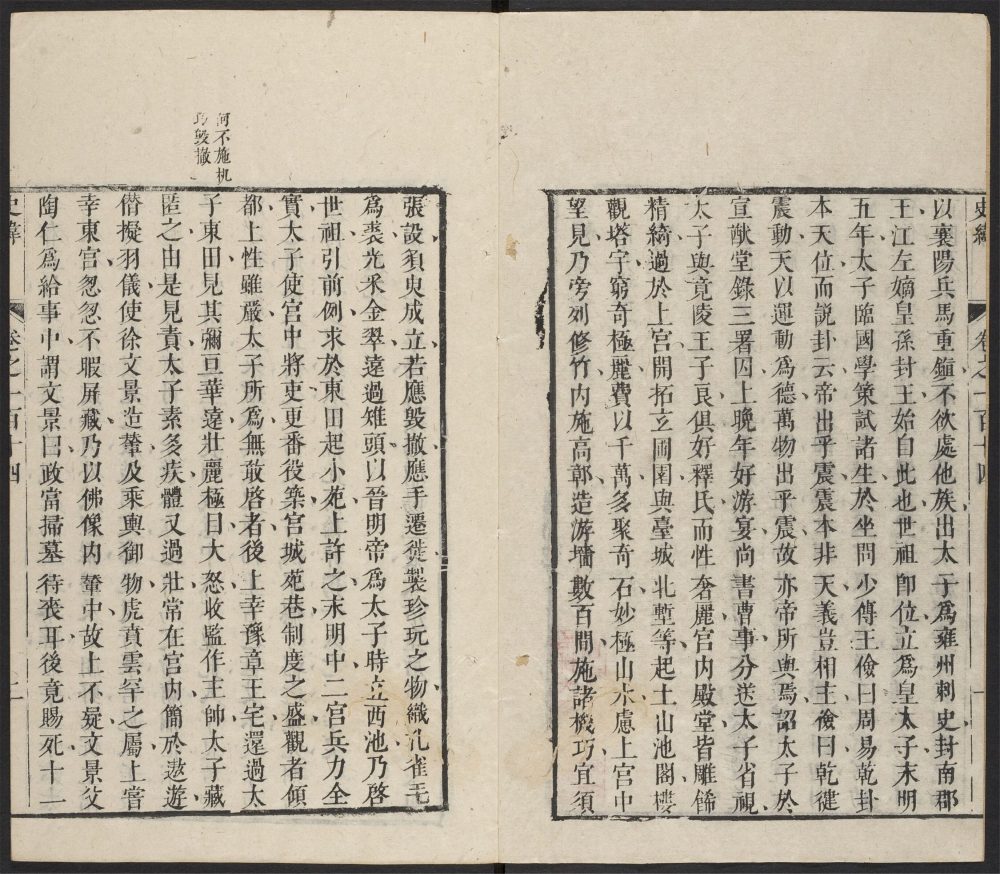 史緯
卷之一百十四
一
以襄陽兵馬重鎮不欲處他族出太子爲雍州刺史封南郡
王江左嫡皇孫封王始自此也世祖卽位立爲皇太子永明
五年太子臨國學策試諸生於坐問少傅王儉曰周易乾卦
本天位而說卦云帝出乎震震本非天義豈相主儉曰乾健
震動天以運動爲德萬物出乎震故亦帝所與焉詔太子於
宣猷堂錄三署囚上晚年好游宴尚書曹事分送太子省視
太子與竟陵王子良俱好釋氏而性奢麗宮内殿堂皆雕餙
精綺過於上宮開拓立圃園與臺城北塹等起土山池閣樓
觀塔宇窮奇極麗費以千萬多聚奇石妙極山水慮上宮中
望見乃旁列修竹内施高鄣造游墻數百間施諸機巧宜須
何不施机
巧毀撤
張設須臾成立若應毀撤應手遷徙製珍玩之物織孔雀毛
爲裘光采金翠遠過雉頭以晉明帝爲太子時立西池乃啓
世祖引前例求於東田起小苑上許之永明中二宮兵力全
實太子使宮中將吏更番役築宮城苑巷制度之盛觀者傾
都上性雖嚴太子所爲無敢啓者後上幸豫章王宅還過太
子東田見其彌亘華遠壯麗極目大怒收監作主帥太子藏
匿之由是見責太子素多疾體又過壯常在宮内簡於遨遊
僣擬羽儀使徐文景造輦及乘輿御物虎賁雲罕之屬上嘗
幸東宮怱怱不暇屏藏乃以佛像内輦中故上不疑文景父
陶仁爲給事中謂文景曰政當掃墓待喪耳後竟賜死十一
史緯
卷之一百十四